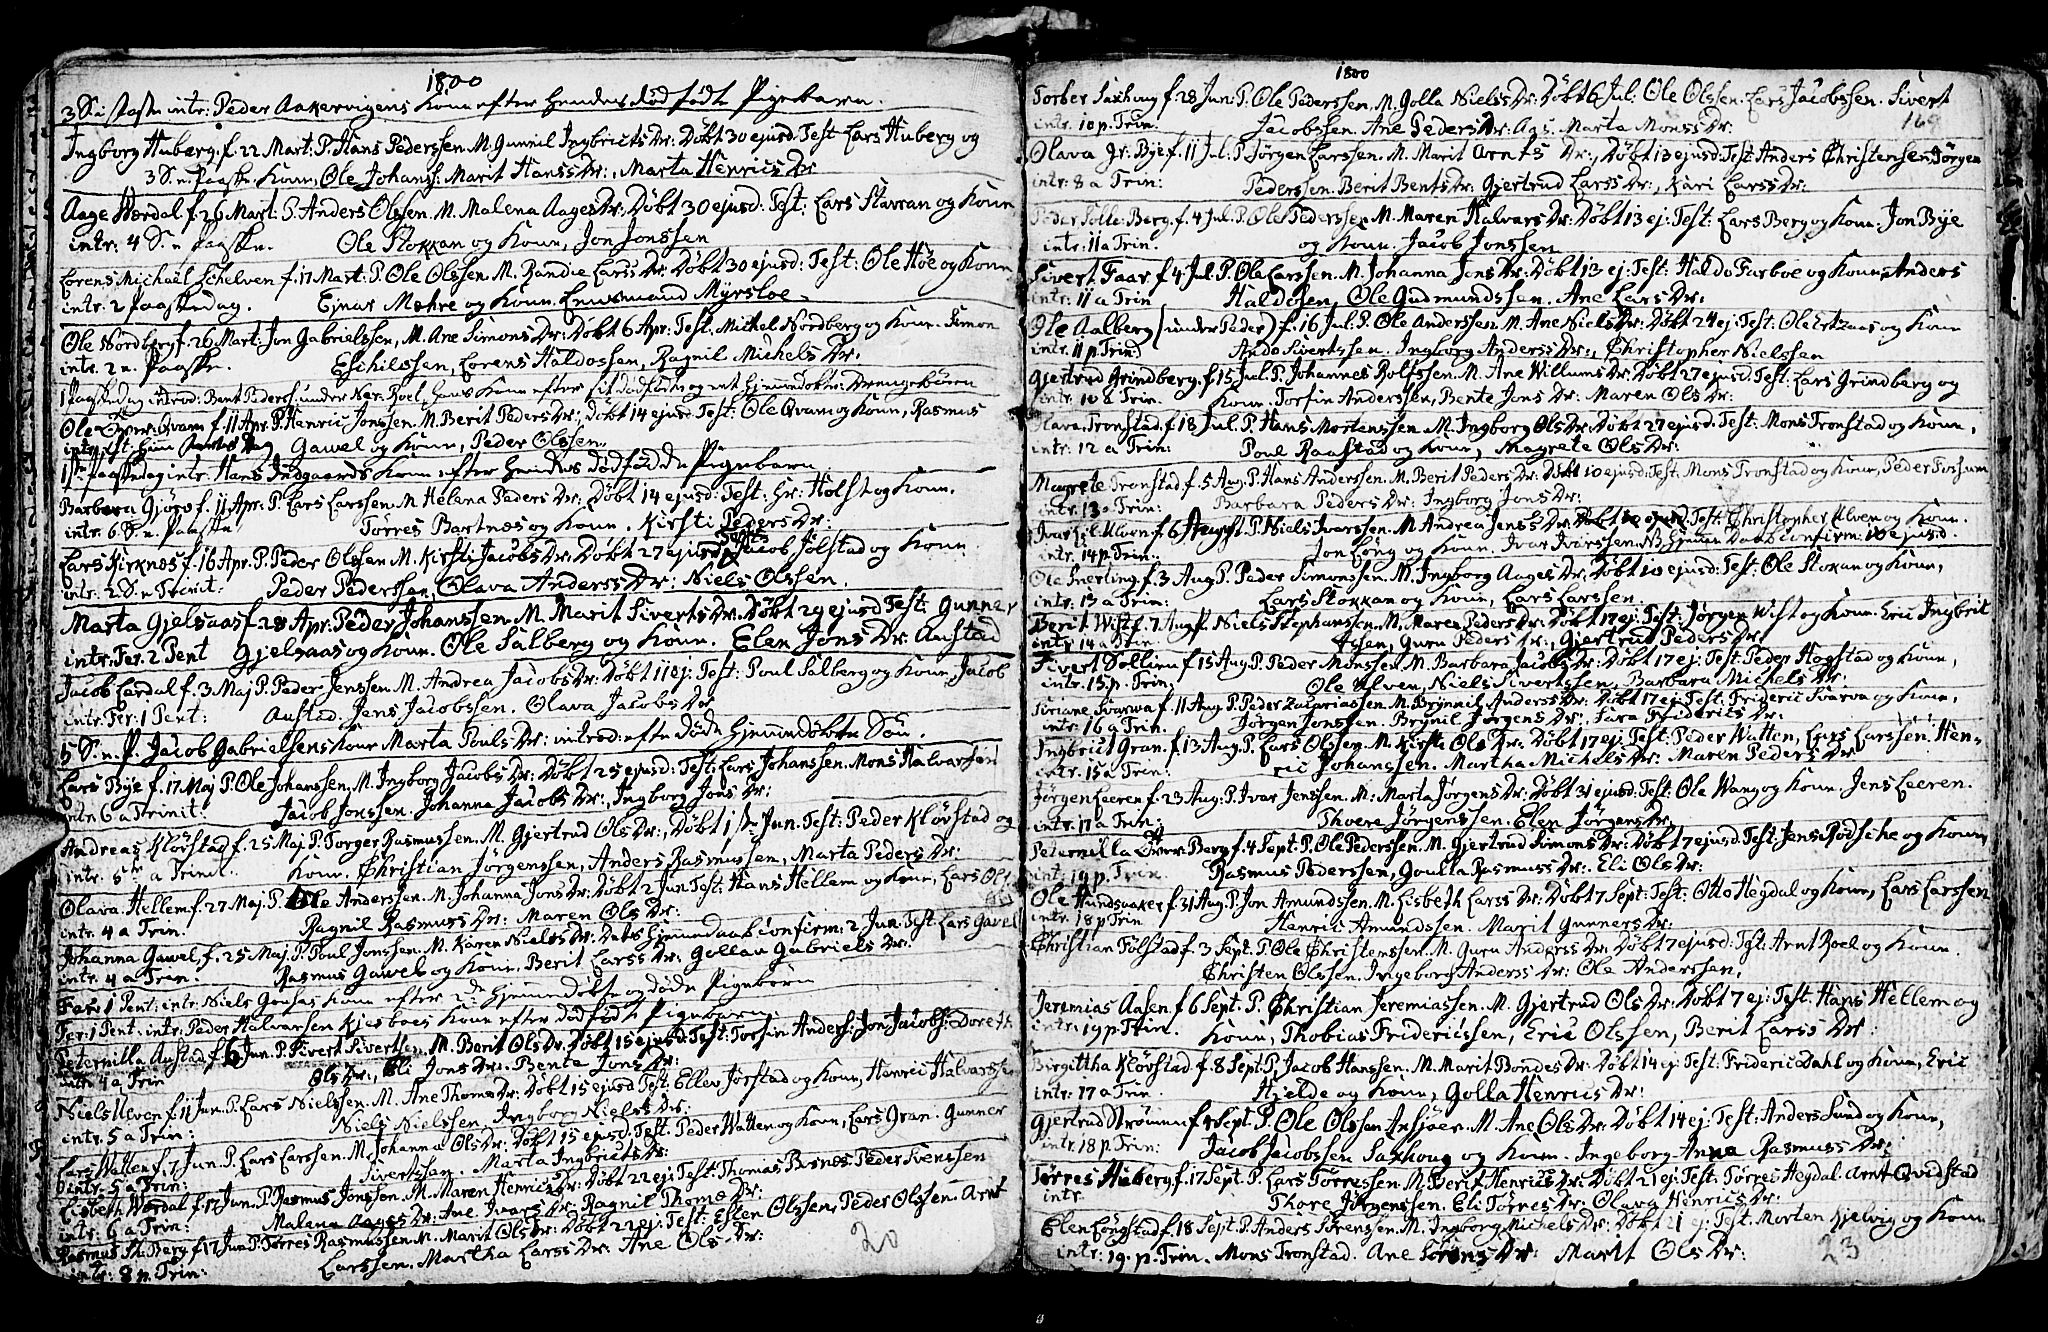 1800
3 S: i Faste intr: Peder Aakervigens Kone efter hendes dødfødte Pigebarn.
Ingborg Huberg, f. 22 Mart: P. Hans Pederssen M. Gunnil Ingbricts Dr: Døbt 30 ejusd: Test Lars Huberg og
3 S. n. Paaske. Kone, Ole Johans: Marit Hanss Dr:, Marta Henrics Dr
Aage Wordal f. 26 Mart: P. Anders Olssen. M. Malena Aages Dr: Døbt 30 ejusd: Test: Lars Stavran og Kone
intr: 4 S. n. Paaske. Ole Stokkan og Kone, Jon Jonssen
Lorens Michael Schelven f. 17 Mart. P. Ole Olssen M. Randie Larss Dr: Døbt 30 ejusd: Test: Ole Høe og Kone
intr: 2 Paaskedag. Ejnar Mæhre og Kone. Myrsloe.
Ole Nordberg f. 26 Mart: Jon Gabrielssen, M. Ane Simons Dr: Døbt 6 Apr: Test. Mikkel Nordberg og Kone. Simon
intr. 2 n. Paaske. Eschilssen, Lorens Haldossen, Ragnil Michels Dr:
1 Paaskedag introd: Bent Peders: under Roel, hans Kone efter sit dødfødte og et hjemmedøbt Drengebørn
Ole Qvam f. 11 Apr. P. Henric Jonssen. M. Berit Peders Dr:, Døbt 14 ejusd: Test: Ole Qvam og Kone, Rasmus
Gawel og Kone, Peder Olssen.
1ste Paaskedag intr: Hans Indgaards Kone efter hendes dødfødde Pigebarn
Barbara Gjørv f. 11 Apr: P. Lars Larssen. M Helena Peders Dr:, Døbt 14 ejusd: Test: Hr: Holst og Kone.
intr: 6 S. n. Paaske Tørres Bartnæs og Kone. Kirsti Peders Dr:
Lars Kirknæs f. 16 Apr. P. Peder Olssen M. Kirsti Jacobs Dr: Døbt 27 ejusd: Test: Jacob Jølstad og Kone
intr: 2 S. n. Trinit: Peder Pederssen, Olava Anderss Dr: Niels Olssen.
Marta Gjelsaas f. 28 Apr. Peder Johanssen M. Marit Siverts Dr: Døbt 29 ejusd Test: Gunner
intr: Fer. 2 Pent Gjelsaas og Kone. Ole Salberg og Kone. Elen Jons Dr. Austad
Jacob Lerdal f. 3 Maj P. Peder Jenssen M. Andrea Jacobs Dr: Døbt 11 ej: Test: Poul Salberg og Kone Jacob
intr: Fer: 1 Pent: Austad. Jens Jacobssen. Olava Jacobs Dr
5 S. n. P. Jacob Gabrielsens Kone Marta Pouls Dr: introd: efter døde hjemmedøbte Søn.
Lars Bye f. 17 Maj P. Ole Johanssen, M. Ingborg Jacobs Dr: Døbt 25 ejusd: Test: Lars Johanssen. Mons Halvarssen
intr 6 a Trinit: Jacob Jonssen. Johanna Jacobs Dr:, Ingborg Jons Dr:
Andreas Kløfstad f. 25 Maj P. Torger Rasmussen. M. Gjertrud Ols Dr:, Døbt 1ste Jun. Test: Peder Kløvstad og
intr: 5te a Trinit: Kone. Christian Jørgenssen, Anders Rasmussen, Marta Peders Dr:
Olava Hellem f. 27 Maj. P. Ole Anderssen. M. Johanna Jons Dr: Døbt 2 Jun. Test: Hans Hellem og Kone, Lars Ols
intr. 4 a Trin. Ragnil Rasmuss Dr: Maren Ols Dr:
Johanna Gawel f. 25 Maj. P. Poul Jonssen. M. Karen Niels Dr: Daab confirm: 2 Jun. Test: Lars Gavel
intr. 4 a Trin: Rasmus Gawel og Kone. Berit Larss Dr: Gollau Gabriels Dr:
Fer: 1 Pent: intr: Niels Kone efter hjemmedøbte og døde Pigebørn
Fer: 1 Pent: intr: Peder Halvarssen Kjesboes Kone efter dødfødt Pigebarn
Peternilla Austad f. 6 Jun. P. Sivert Sivertsen. M. Berit Ols Dr. Døbt 15 ejusd: Test: Torfin Anders: Jon Jacobs: Doreth
intr: 4 a Trin Ols Dr:, Eli Jons Dr: Bente Jons Dr:
Niels Ulven f. 11 Jun. P. Lars Nielssen. M. Ane Thomæ Dr: Døbt 15 ejusd Test: Ellev Jørstad og Kone, Henric Halvarssen
intr. 5 a Trin: Niels Nielssen, Ingborg Nielss Dr:
Lars Watten f. 7 Jun. P. Lars Larssen. M. Johanna Ols Dr: Døbt 15 ejusd. Test: Peder Watten og Kone, Lars Gran. Gunner
intr: 5 a Trin: Sivertssen. Marta Ingbricts Dr:
Lisbeth Wordal f. 17 Jun. P. Rasmus Jonssen. M. Maren Henrics Dr: Døbt 22 ej: Test: Thomas Busnes. Peder Svenssen
intr: 6 a Trin: Malena Aages Dr: Ane Ivars Dr: Ragnil Thomæ Dr:
Rasmus St: Berg f. 17 Jun P. Tørres Rasmussen M. Marit Ols Dr: Døbt 22 ej: Test: Esten Olssen, Peder Olssen. Arnt
intr: 8 p. Trin: Larssen. Martha Larss Dr: Ane Ols Dr:
20
1800
Torber Saxhoug f. 28 Jun. P. Ole Pederssen, M. Golla Nielss Dr: Døbt 6 Jul: Ole Olssen. Lars Jacobssen. Sivert
intr. 10 p. Trin. Jacobssen. Ane Peders Dr: Marta Monss Dr:
Olava Bye f. 11 Jul. P. Jørgen Larssen. M. Marit Arnts Dr:, Døbt 13 ejusd: Test: Anders Christensen Jørgen
intr: 8 a Trin: Pederssen. Berit Bents Dr: Gjertrud Larss Dr:, Kari Larss Dr:
Peder Berg. f. 4 Jul. P. Ole Pederssen M. Maren Halvars Dr: Døbt 13 ej: Test: Lars Berg og Kone. Jon Bye
intr: 11 a Trin. og Kone. Jacob Jonssen
Sivert Faar. f. 4 Jul. P. Ole Larssen. M. Johanna Jons Dr: Døbt 13 ej: Test: Haldo Furboe og Kone, Anders
intr: 11 a Trin Haldosen, Ole Gudmundssen. Ane Lars Dr:
Ole Aalberg (under Peder) f. 16 Jul. P. Ole Anderssen. M. Ane Niels Dr: Døbt 24 ej: Test: Ole Ertzaas og Kone
intr: 11 p. Trin: Ando Sivertssen. Ingborg Anderss Dr:, Christopher Nielssen
Gjertrud Grindberg. f. 15 Jul. P. Johannes Rolfssen. M. Ane Willums Dr: Døbt 27 ejusd: Test: Lars Grindberg og
intr: 10 a Trin. Kone. Torfin Anderssen, Bente Jons Dr: Maren Ols Dr:
Olava Tronstad. f. 18 Jul. P. Hans Mortenssen. M. Ingborg Ols Dr: Døbt 27 ejusd: Test: Mons Tronstad og Kone,
intr. 12 a Trin: Poul Raastad og Kone, Magrete Ols Dr:
Magrete Tronstad f. 5 Aug. P. Hans Anderssen. M. Berit Peders Dr: Døbt 10 ejusd: Test: Mons Tronstad og Kone, Peder Forsum
intr. 13 a Trin: Barbara Peders Dr: Ingborg Jons Dr:
Ivar Ulven f. 6 August P. Niels Ivarssen. M. Andrea Jenss Dr: Døbt 10 ejusd: Test: Christopher Ulven og Kone.
intr: 14 p. Trin: Jon Long og Kone. Ivar Ivarssen. NB. Daab confirm: 10 ejusd.
Ole Snerling f. 3 Aug P. Peder Simonssen. M. Ingborg Aages Dr: Døbt 10 ejusd: Test: Ole Stokan og Kone,
intr: 13 a Trin: Lars Stokkan og Kone, Lars Larssen.
Berit Wist f. 7 Aug. P. Niels Stephanssen. M. Maren Peders Dr: Døbt 17 ej: Test: Jørgen Wist og Kone. Eric Ingbrit
intr: 14 a Trin: tssen, Guru Peders Dr:, Gjertrud Peders Dr.
Sivert Sollien f. 15 Aug. P. Peder Monssen. M. Barbara Jacobs Dr: Døbt 17 ej: Test: Peder Hogstad og Kone,
intr. 15 p. Trin: Ole Ulven, Niels Sivertssen, Barbara Michels Dr:
Siriane Svarva f. 11 Aug. P. Peder Zachariassen M. Brynnil Anderss Dr: Døbt 17 ej: Test: Frideric Svarva og Kone,
intr. 16 a Trin. Jørgen Jonssen. Brynil Jørgens Dr:, Sara Friderics Dr:
Ingbrict Gran. f. 13 Aug. P. Lars Olssen. M. Kirsti Ols Dr: Døbt 17 ej: Test: Peder Watten, Lars Larssen. Hen-
intr: 15 a Trin: ric Johanssen. Martha Michels Dr: Maren Peders Dr
Jørgen Leeren f. 23 Aug. P. Ivar Jenssen. M. Marta Jørgens Dr: Døbt 31 ejusd: Test: Ole Wang og Kone Jens Leeren.
intr: 17 a Trin: Thore Jørgenssen. Elen Jørgens Dr.
Peternilla Berg f. 4 Sept. P. Ole Pederssen. M. Gjertrud Simons Dr: Døbt 7 ejusd: Test: Jens Rødsche og Kone,
intr: 19 p. Trin. Rasmus Pederssen, Goulla Rasmuss Dr: Eli Ols Dr:
Ole Hundsaaker f. 31 Aug. P. Jon Amundssen. M. Lisbeth Larss Dr: Døbt 7 Sept: Test: Otto Hegdal og Kone, Lars Larssen
intr: 18 p Trin Henric Amundssen. Marit Gunners Dr:
Christian Følstad f. 3 Sept. P. Ole Christenssen. M. Guru Anderss Dr: Døbt 7 ejusd: Test: Arnt Roel og Kone
Christen Olssen. Ingeborg Anderss Dr: Ole Anderssen,
Jeremias Aasen f. 6 Sept. P. Christian Jeremiassen. M. Gjertrud Ols Dr: Døbt 7 ej: Test: Hans Hellem og
intr: 19 p. Trin. Kone, Thobias Fridericssen, Eric Olssen, Berit Larss Dr:
Birgittha Kløfstad f. 8 Sept. P. Jacob Hanssen. M. Marit Bondes Dr: Døbt 14 ej: Test: Frideric Dahl og Kone, Eric
intr: 17 a Trin. Hjelde og Kone, Golla Henrics Dr:
Gjertrud Strømme f. 4 Sept. P. Ole Olssen Ansjøer. M. Ane Ols Dr: Døbt 14 ej: Test: Anders Sund og Kone,
intr: 18 p. Trin: Jacob Jacobssen Saxhoug og Kone. Ingeborg Anna Rasmuss Dr:
Tørres Huberg f. 17 Sept. P. Lars Tørressen. M. Berit Henrics Dr: Døbt 21 ej: Test. Tørres Hegdal. Arnt Qvidstad
intr Thore Jørgenssen. Eli Tørres Dr: Olava Henrics Dr:
Elen Longstad f. 18 Sept. P. Anders Sørenssen. M. Ingborg Michels Dr: Døbt 21 ej: Test. Morten Kjelvig og Kone
intr: 19. p. Trin. Mons Tronstad. Ane Sørens Dr: Marit Ols Dr:
23